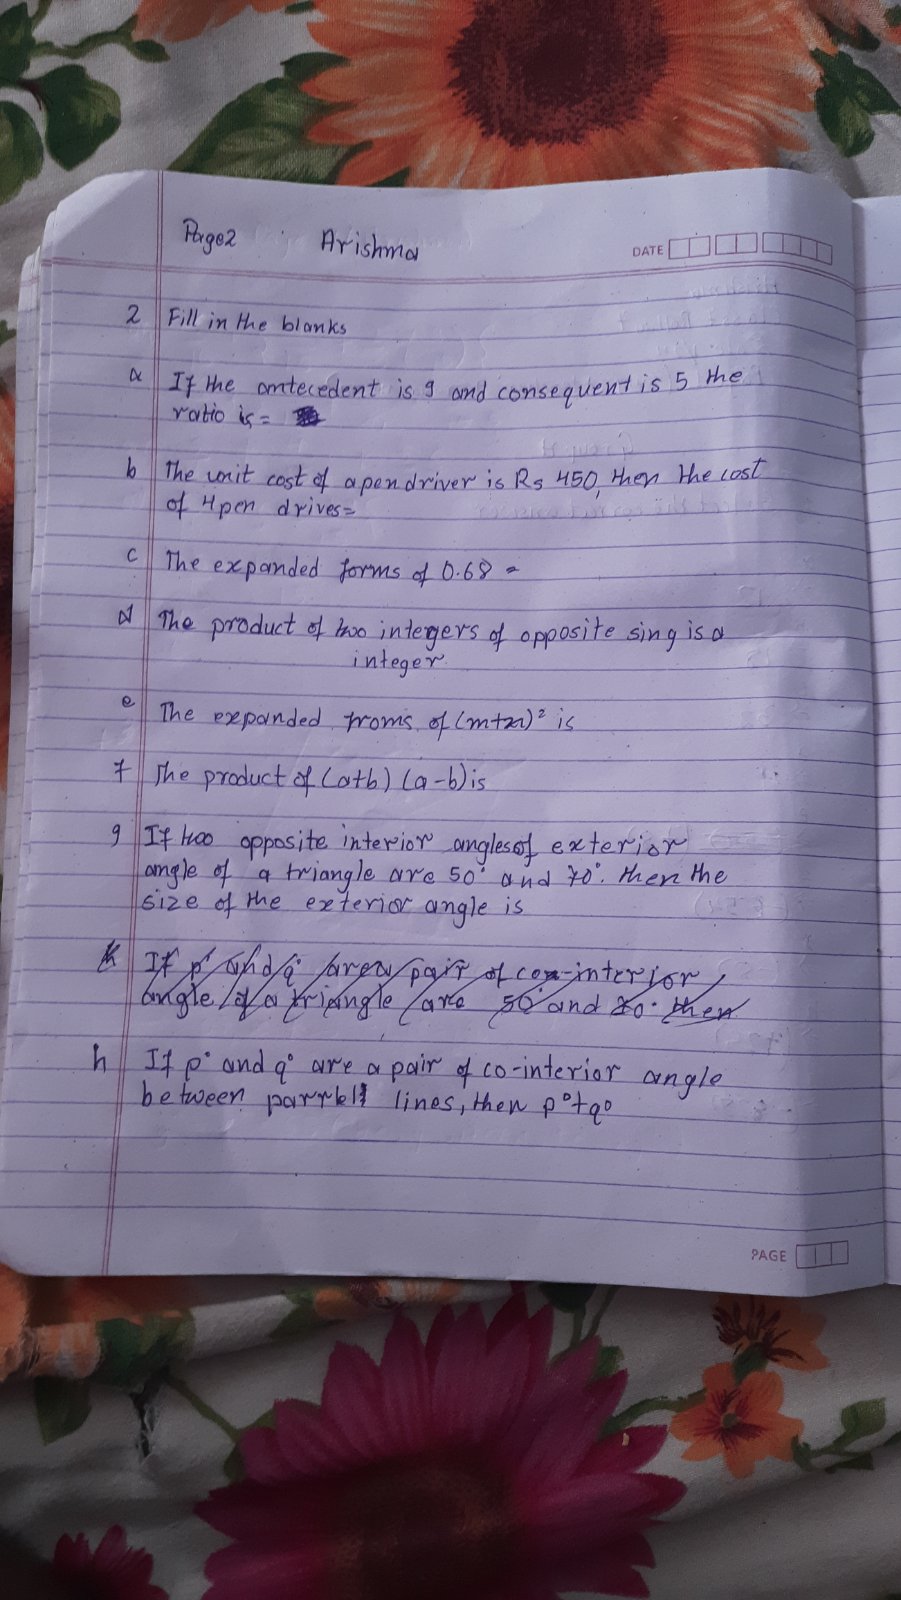 Page2 Arishma
DATE
2 Fill in the blanks
a If the antecedent is 9 and consequent is 5 the
ratio is =
b The unit cost of a pen driver is Rs 450, then the cost
of 4 pen drives=
c The expanded forms of 0.68 =
d The product of two integers of opposite sing is a
integer
e The expanded froms of (m+n)² is
f The product of (a+b) (a-b) is
g If two opposite interior angles of exterior
angle of a triangle are 50° and 70°. then the
size of the exterior angle is
If p° and q° are a pair of con-interior
angle of a triangle are 50° and 70° then
h If p° and q° are a pair of co-interior angle
between lines, then p°+q°
PAGE